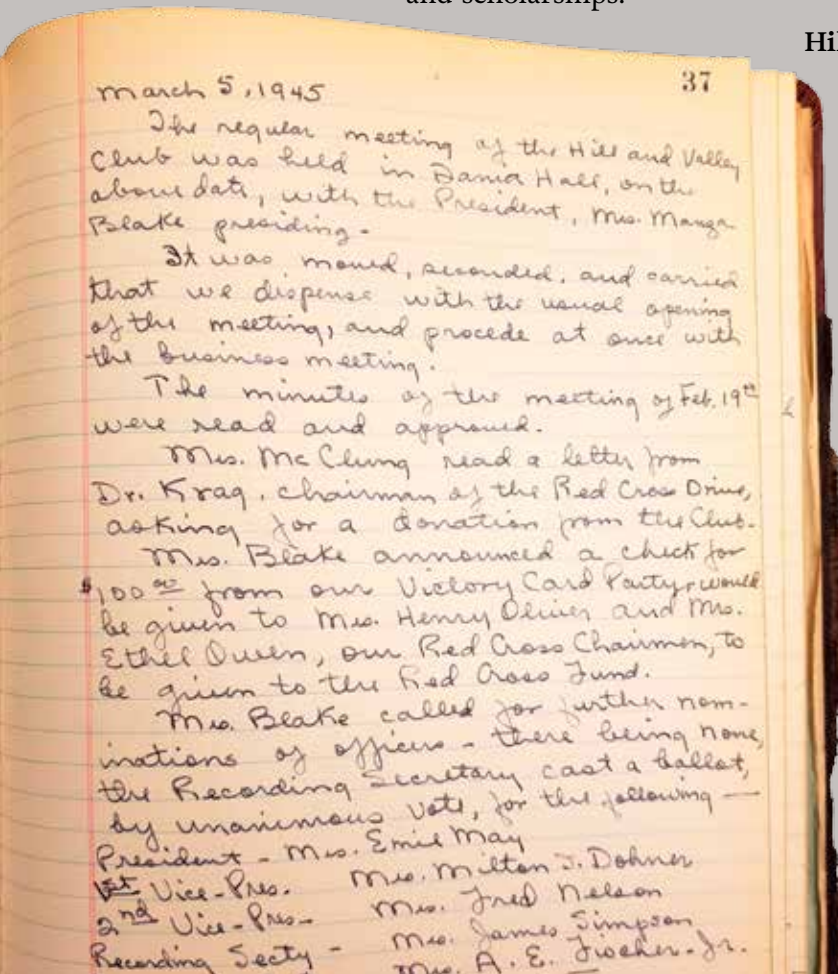 and scholarships.
Hil
37
March 5, 1945
The regular meeting of the Hill and Valley
Club was held in Dania Hall, on the
above date, with the President, Mrs. Manga
Blake presiding.
It was moved, seconded, and carried
that we dispense with the usual opening
of the meeting, and procede at once with
the business meeting.
The minutes of the meeting of Feb. 19th
were read and approved.
Mrs. McClung read a letter from
Dr. Krag, chairman of the Red Cross Drive,
asking for a donation from the Club.
Mrs. Blake announced a check for
$100.00 from our Victory Card Party, would
be given to Mrs. Henry Oliver and Mrs.
Ethel Owen, our Red Cross Chairmen, to
be given to the Red Cross Fund.
Mrs. Blake called for further nom-
inations of officers - there being none,
the Recording Secretary cast a ballot,
by unanimous vote, for the following —
President - Mrs. Emil May
1st Vice-Pres. Mrs. Milton J. Dohner
2nd Vice-Pres - Mrs. Fred Nelson
Recording Secty - Mrs. James Simpson
Mrs. A. E. Jr.